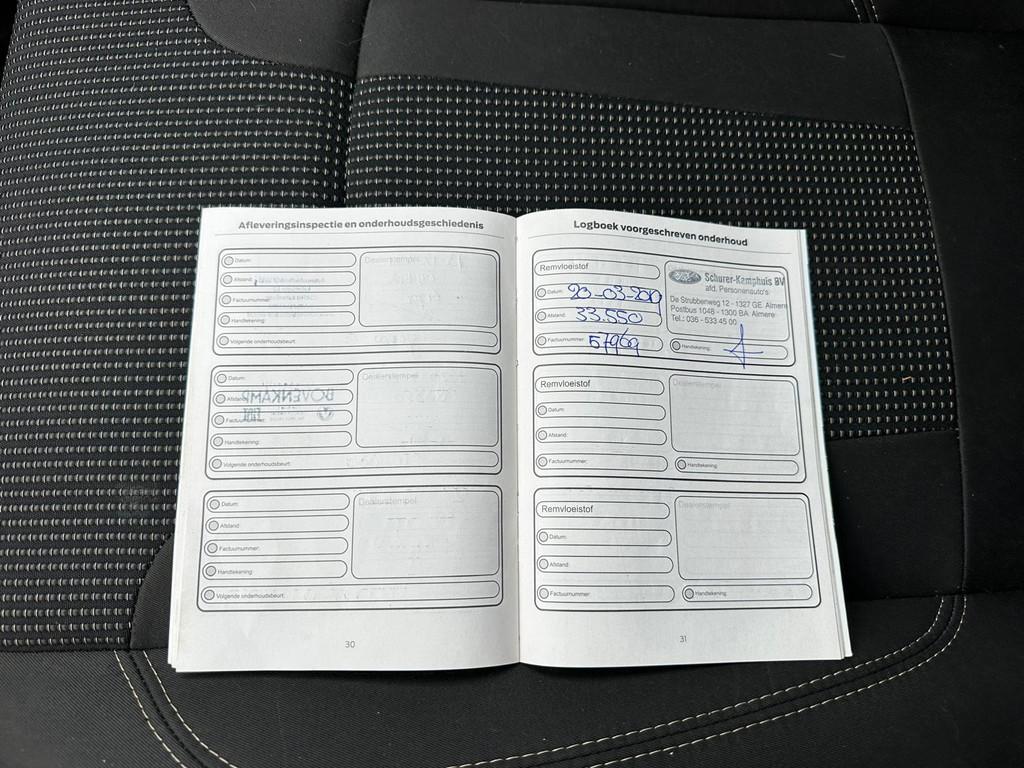 Afleveringsinspectie en onderhoudsgeschiedenis
Datum:
Dealerstempel
Afstand:
Factuurnummer:
Handtekening:
Volgende onderhoudsbeurt:
Datum:
Dealerstempel
Afstand:
BOVENKAMP
Factuurnummer:
Handtekening:
Volgende onderhoudsbeurt:
Datum:
Dealerstempel
Afstand:
Factuurnummer:
Handtekening:
Volgende onderhoudsbeurt:
30
Logboek voorgeschreven onderhoud
Remvloeistof
Ford Schurer-Kamphuis BV
afd. Personenauto's
De Strubbenweg 12 - 1327 GE Almere
Postbus 1048 - 1300 BA Almere
Tel.: 036 - 533 45 00
Datum:
Afstand: 33.550
Factuurnummer: 57969
Handtekening:
Remvloeistof
Dealerstempel
Datum:
Afstand:
Factuurnummer:
Handtekening:
Remvloeistof
Dealerstempel
Datum:
Afstand:
Factuurnummer:
Handtekening:
31